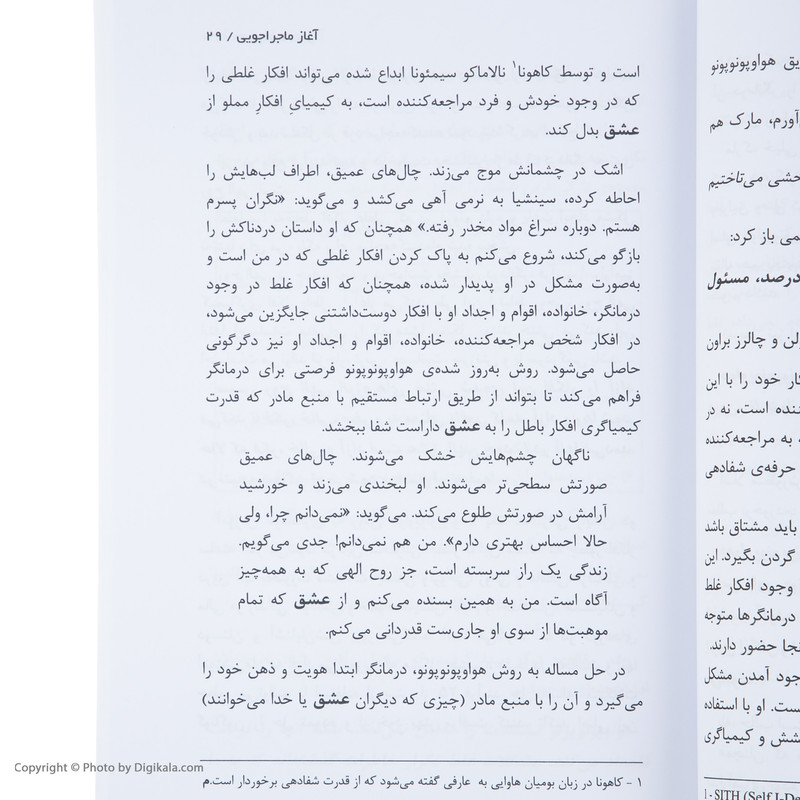 آغاز ماجراجویی / ۲۹
است و توسط کاهونا۱ نالاماکو سیمئونا ابداع شده می‌تواند افکار غلطی را
که در وجود خودش و فرد مراجعه‌کننده است، به کیمیایِ افکارِ مملو از
عشق بدل کند.
اشک در چشمانش موج می‌زند. چال‌های عمیق، اطراف لب‌هایش را
احاطه کرده، سینشیا به نرمی آهی می‌کشد و می‌گوید: «نگران پسرم
هستم. دوباره سراغ مواد مخدر رفته.» همچنان که او داستان دردناکش را
بازگو می‌کند، شروع می‌کنم به پاک کردن افکار غلطی که در من است و
به‌صورت مشکل در او پدیدار شده، همچنان که افکار غلط در وجود
درمانگر، خانواده، اقوام و اجداد او با افکار دوست‌داشتنی جایگزین می‌شود،
در افکار شخص مراجعه‌کننده، خانواده، اقوام و اجداد او نیز دگرگونی
حاصل می‌شود. روش به‌روز شده‌ی هواوپونوپونو فرصتی برای درمانگر
فراهم می‌کند تا بتواند از طریق ارتباط مستقیم با منبع مادر که قدرت
کیمیاگری افکار باطل را به عشق داراست شفا ببخشد.
ناگهان چشم‌هایش خشک می‌شوند. چال‌های عمیق
صورتش سطحی‌تر می‌شوند. او لبخندی می‌زند و خورشید
آرامش در صورتش طلوع می‌کند. می‌گوید: «نمی‌دانم چرا، ولی
حالا احساس بهتری دارم». من هم نمی‌دانم! جدی می‌گویم.
زندگی یک راز سربسته است، جز روح الهی که به همه‌چیز
آگاه است. من به همین بسنده می‌کنم و از عشق که تمام
موهبت‌ها از سوی او جاری‌ست قدردانی می‌کنم.
در حل مساله به روش هواوپونوپونو، درمانگر ابتدا هویت و ذهن خود را
می‌گیرد و آن را با منبع مادر (چیزی که دیگران عشق یا خدا می‌خوانند)
۱ - کاهونا در زبان بومیان هاوایی به عارفی گفته می‌شود که از قدرت شفادهی برخوردار است.م
یق هواوپونوپونو
آورم، مارک هم
حشی می‌تاختیم
می باز کرد:
درصد، مسئول
لن و چالرز براون
کار خود را با این
ننده است، نه در
به مراجعه‌کننده
حرفه‌ی شفادهی
باید مشتاق باشد
گردن بگیرد. این
وجود افکار غلط
درمانگرها متوجه
نجا حضور دارند.
جود آمدن مشکل
ست. او با استفاده
شش و کیمیاگری
۱- SITH (Self I-De
Copyright © Photo by Digikala.com